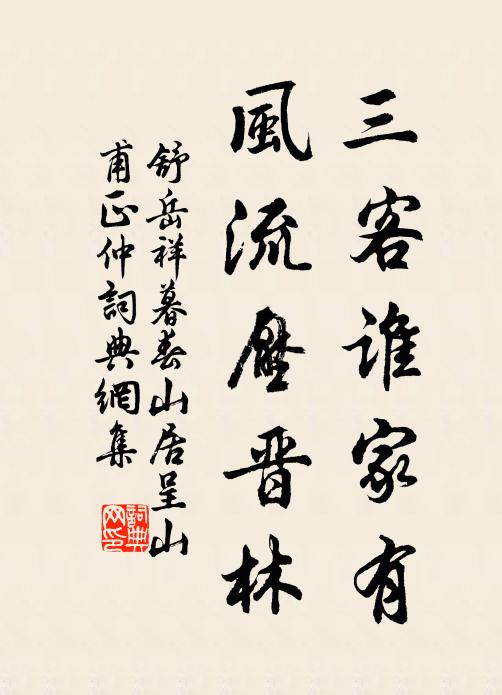 三客誰家有
風流壓晋林
舒岳祥暮春山居呈山
甫正仲詞典網集
詞典
网印